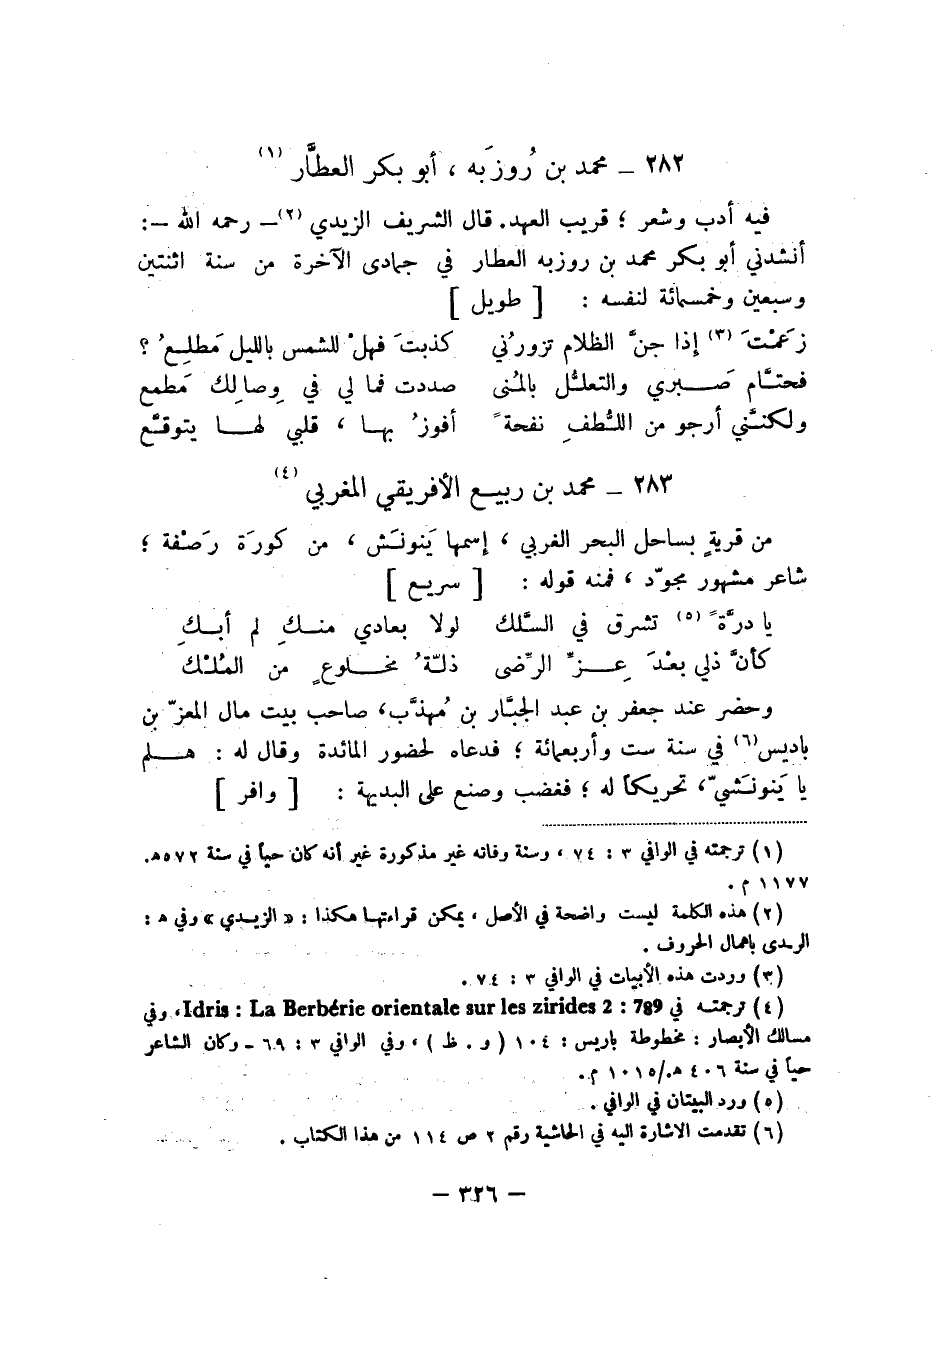 ٢٨٢ – محمد بن رُوزَبه ، أبو بكر العطَّار (١)
فيه أدب وشعر ؛ قريب العهد. قال الشريف الزيدي (٢)– رحمه الله –:
أنشدني أبو بكر محمد بن روزبه العطار في جمادى الآخرة من سنة اثنتين
وسبعين وخمسمائة لنفسه : [ طويل ]
زعَمْتَ (٣) إذا جنَّ الظلام تزورُني كذبتَ فهلْ للشمس بالليل مَطلِعُ ؟
فحتَّام صَبري والتعلثُّل بالمُنى صددت فما لي في وِصالِك مَطمع
ولكنَّني أرجو من اللُّطفِ نفحةً أفوزُ بها ، قلبي لها يتوقَّع
٢٨٣ – محمد بن ربيع الأفريقي المغربي (٤)
من قريةٍ بساحل البحر الغربي ، إسمها يَنونَش ، من كورَة رَصْفة ؛
شاعر مشهور مجوّد ، فمنه قوله : [ سريع ]
يا درَّةً (٥) تشرق في السَّلك لولا بعادي منكِ لم أبكِ
كأنَّ ذلي بعْدَ عِزِّ الرِّضى ذلّةُ مخلوعٍ من المُلْك
وحضر عند جعفر بن عبد الجبَّار بن مُهذَّب، صاحب بيت مال المعزّ بن
باديس(٦) في سنة ست وأربعمائة ؛ فدعاه لحضور المائدة وقال له : هلم
يا يَنونَشيّ، تحريكاً له ؛ فغضب وصنع على البديهة : [ وافر ]
(١) ترجمته في الوافي ٣ : ٧٤ ، وسنة وفاته غير مذكورة غير أنه كان حياً في سنة ٥٧٢هـ.
١١٧٧ م .
(٢) هذه الكلمة ليست واضحة في الأصل ، يمكن قراءتها هكذا : « الزيدي » وفي هـ :
الردى باهمال الحروف .
(٣) وردت هذه الأبيات في الوافي ٣ : ٧٤ .
(٤) ترجمته في Idris : La Berbérie orientale sur les zirides 2 : 789، وفي
مسالك الأبصار : مخطوطة باريس : ١٠٤ ( و . ظ ) ، وفي الوافي ٣ : ٦٩ – وكان الشاعر
حياً في سنة ٤٠٦ هـ/١٠١٥ م .
(٥) ورد البيتان في الوافي .
(٦) تقدمت الاشارة اليه في الحاشية رقم ٢ ص ١١٤ من هذا الكتاب .
– ٣٢٦ –